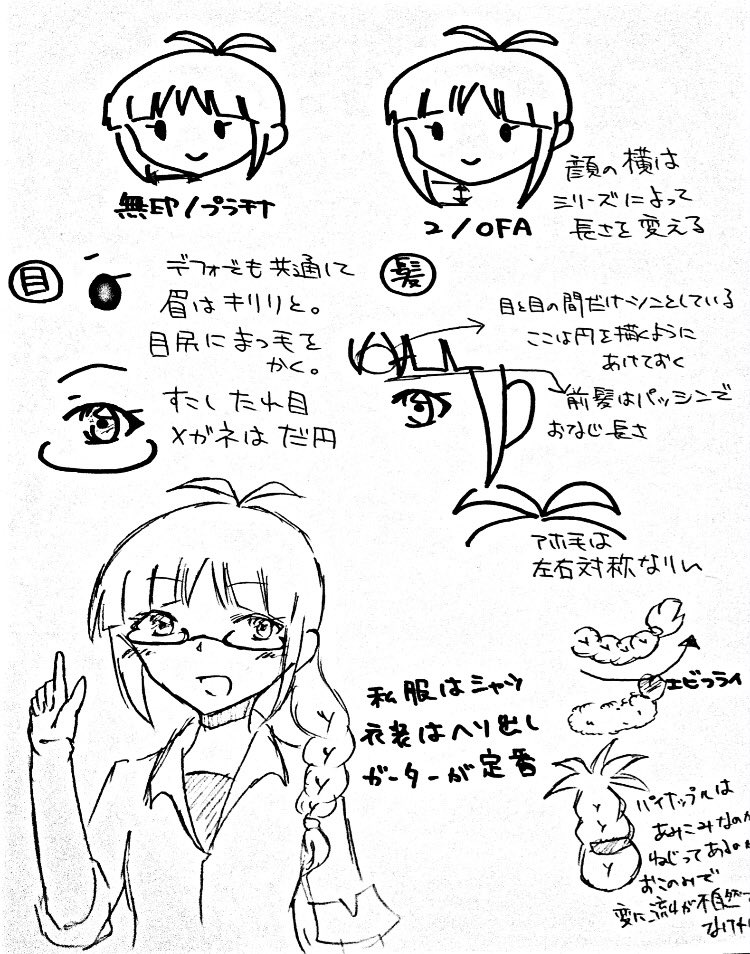 無印/プラチナ
2/OFA
顔の横は
シリーズによって
長さを変える
目
デフォでも共通して
眉はキリリと。
目尻にまつ毛を
かく。
すこしたれ目
メガネはだ円
髪
目と目の間だけツンツンとしている
ここは円を描くように
あけておく
前髪はパッツンで
おなじ長さ
アホ毛は
左右対称なりし
私服はシャツ
衣装はヘソ出し
ガーターが定番
エビフライ
パイナップルは
あみこみなのか
ねじってあるのか
おこのみで
変に流れが不自然で
なければ